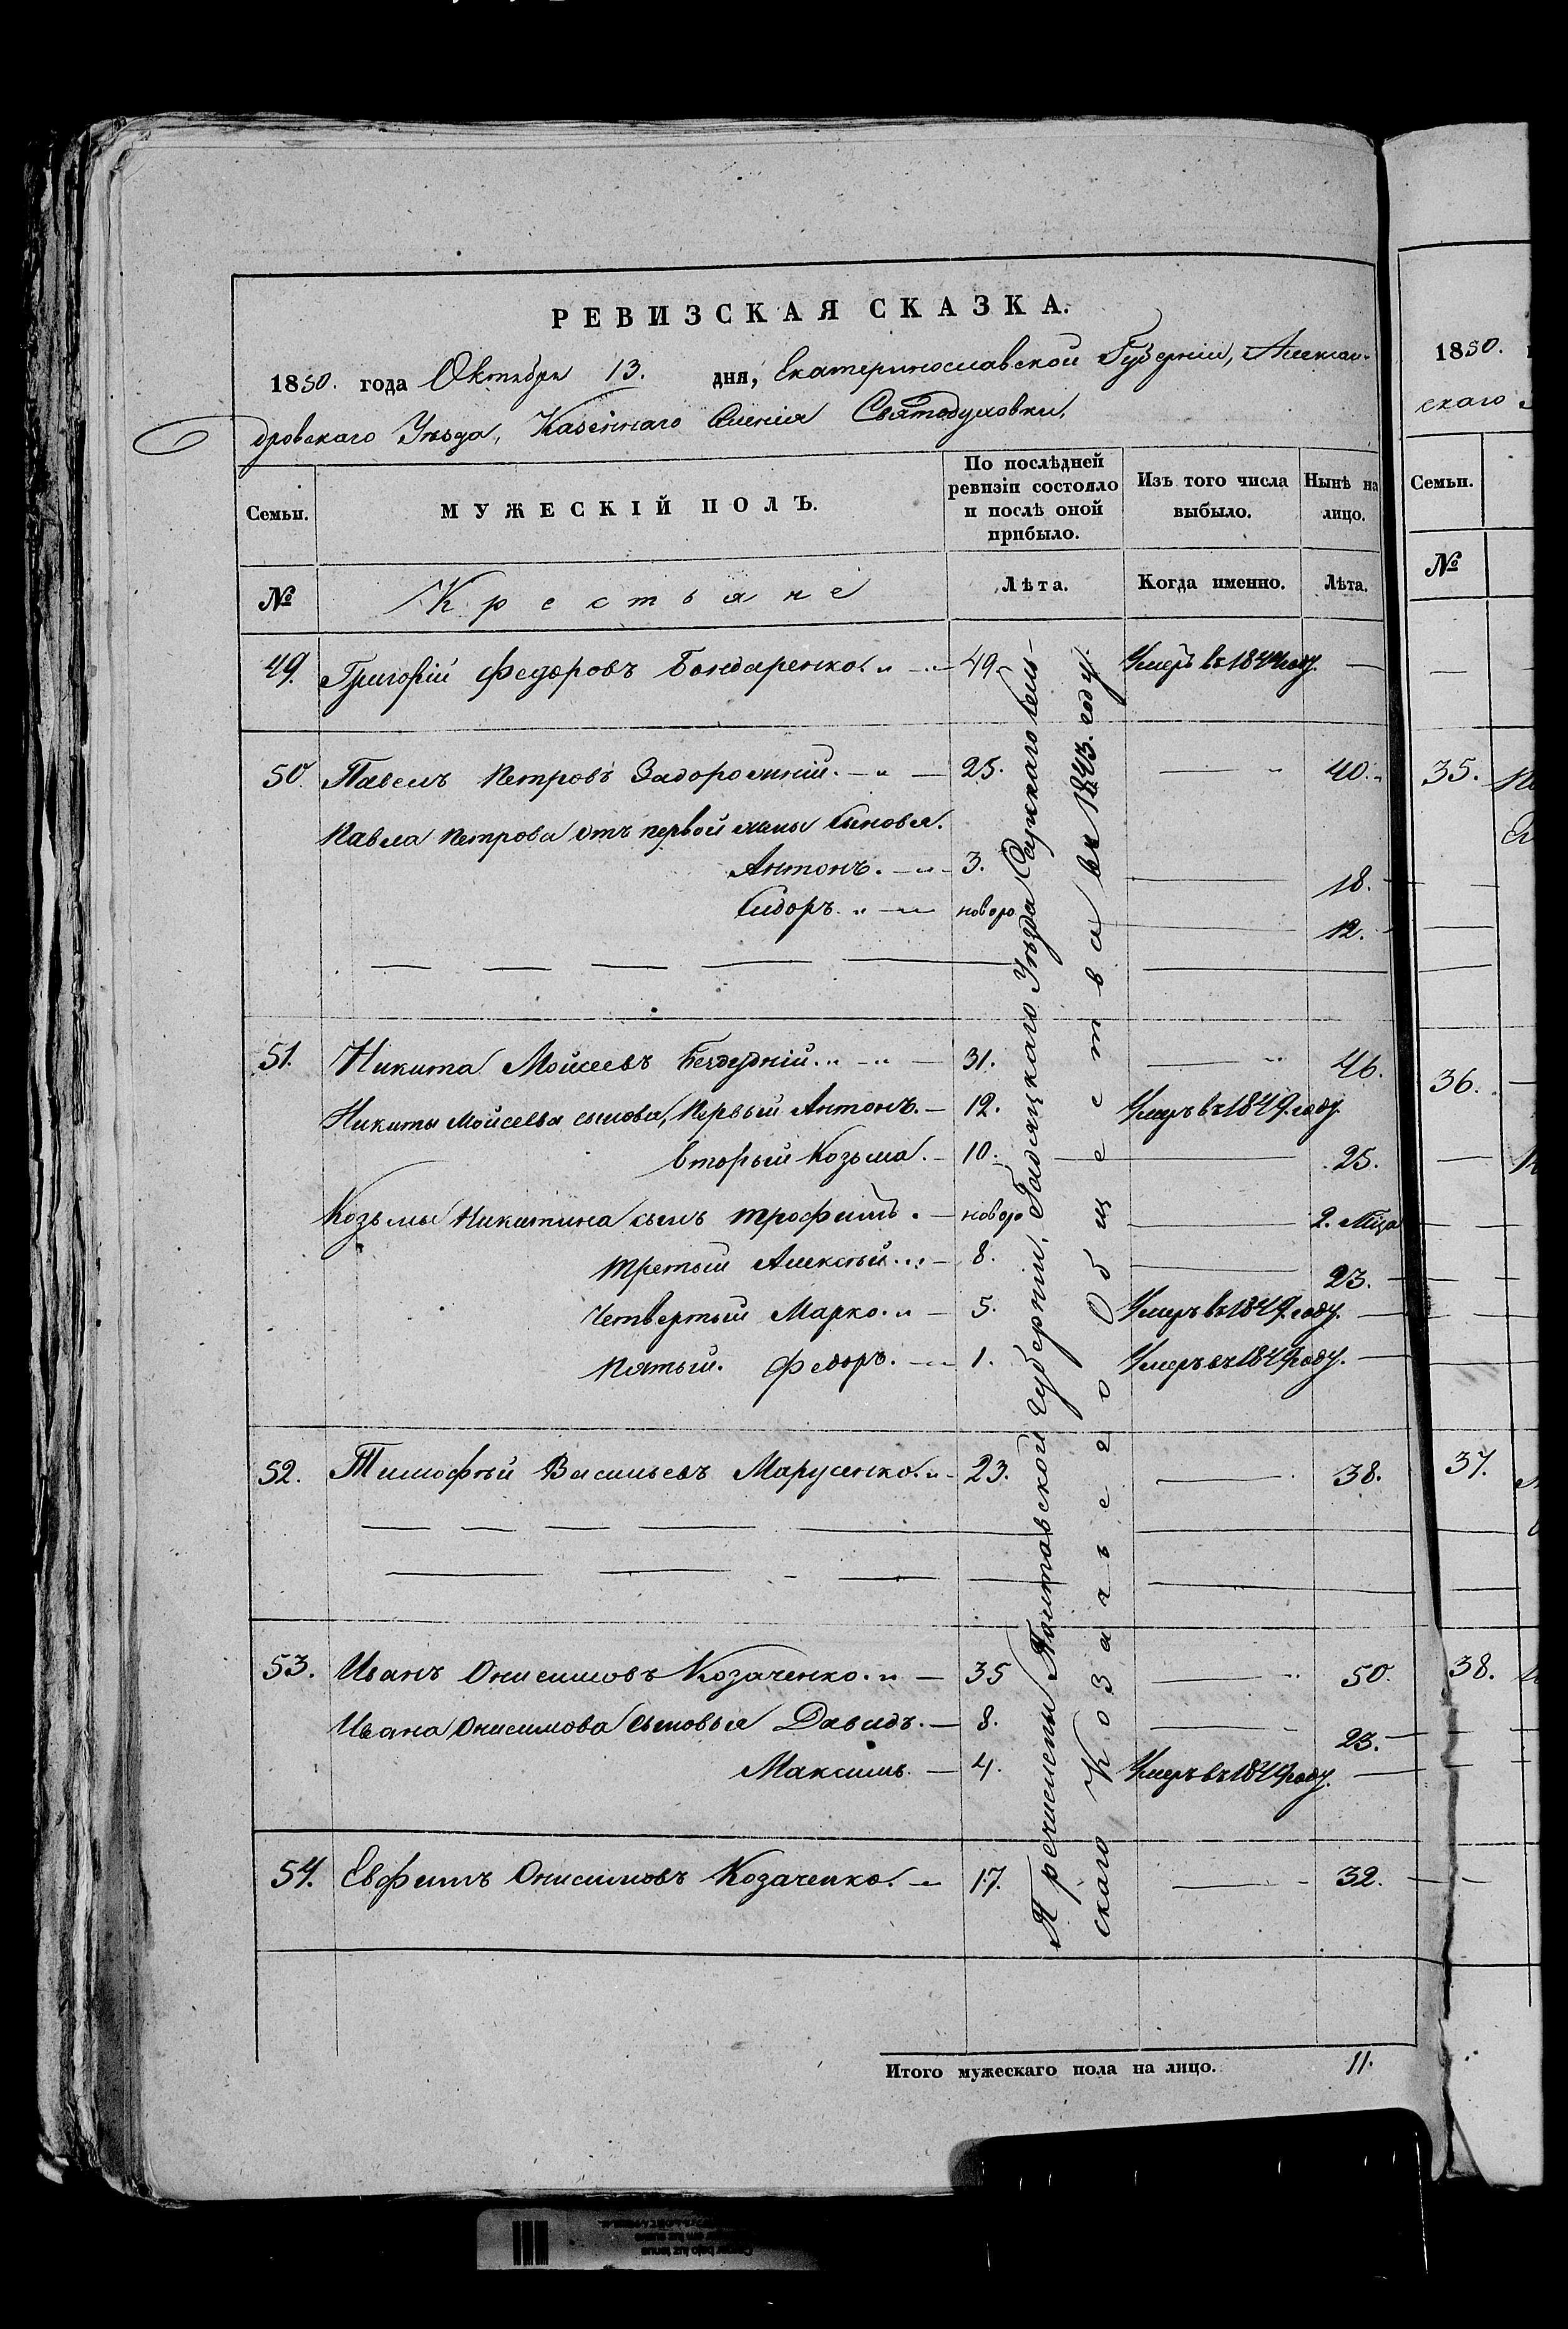 РЕВИЗСКАЯ СКАЗКА.
1850. года Октября 13. дня, Екатеринославской Губерніи, Алексан-
дровскаго Уѣзда, Казеннаго Селенія Святодуховки.
Семьи. МУЖЕСКІЙ ПОЛЪ. По послѣдней ревизіи состояло и послѣ оной прибыло. Изъ того числа выбыло. Нынѣ на лицо.
№ Крестьяне Лѣта. Когда именно. Лѣта.
49. Григорій Федоровъ Бондаренко. 49. Умеръ въ 1844 году. —
50. Павелъ Петровъ Задорожній. 25. — 40.
Павла Петрова отъ первой жены сыновья.
Антонъ. 3. — 18.
Сидоръ. новоро — 12.
51. Никита Мойсеевъ 31. — 46.
Никиты Мойсеева сыновья, Первый Антонъ. 12. Умеръ въ 1849. году.
вторый Козьма. 10. — 25.
Козьмы Никитина сынъ Трофимъ. новоро — 2. Мца
Третый Алексѣй. 8. — 23.
Четвертый Марко. 5. Умеръ въ 1849. году. —
Пятый. Федоръ. 1. Умеръ въ 1849 году. —
52. Тимофѣй Васильевъ Марусенко. 23. — 38.
53. Иванъ Онисимовъ Козаченко. 35 — 50.
Ивана Онисимова сыновья Давидъ. 8. — 23.
Максимъ. 4. Умеръ въ 1849 году. —
54. Евфимъ Онисимовъ Козаченко. 17. — 32.
Пречислены Полтавской Губерніи, Гадяцкаго Уѣзда
скаго Козачьего Общества въ 1843. году.
Итого мужескаго пола на лицо. 11.
1850.
скаго
Семьи.
№
35.
36.
37.
38.